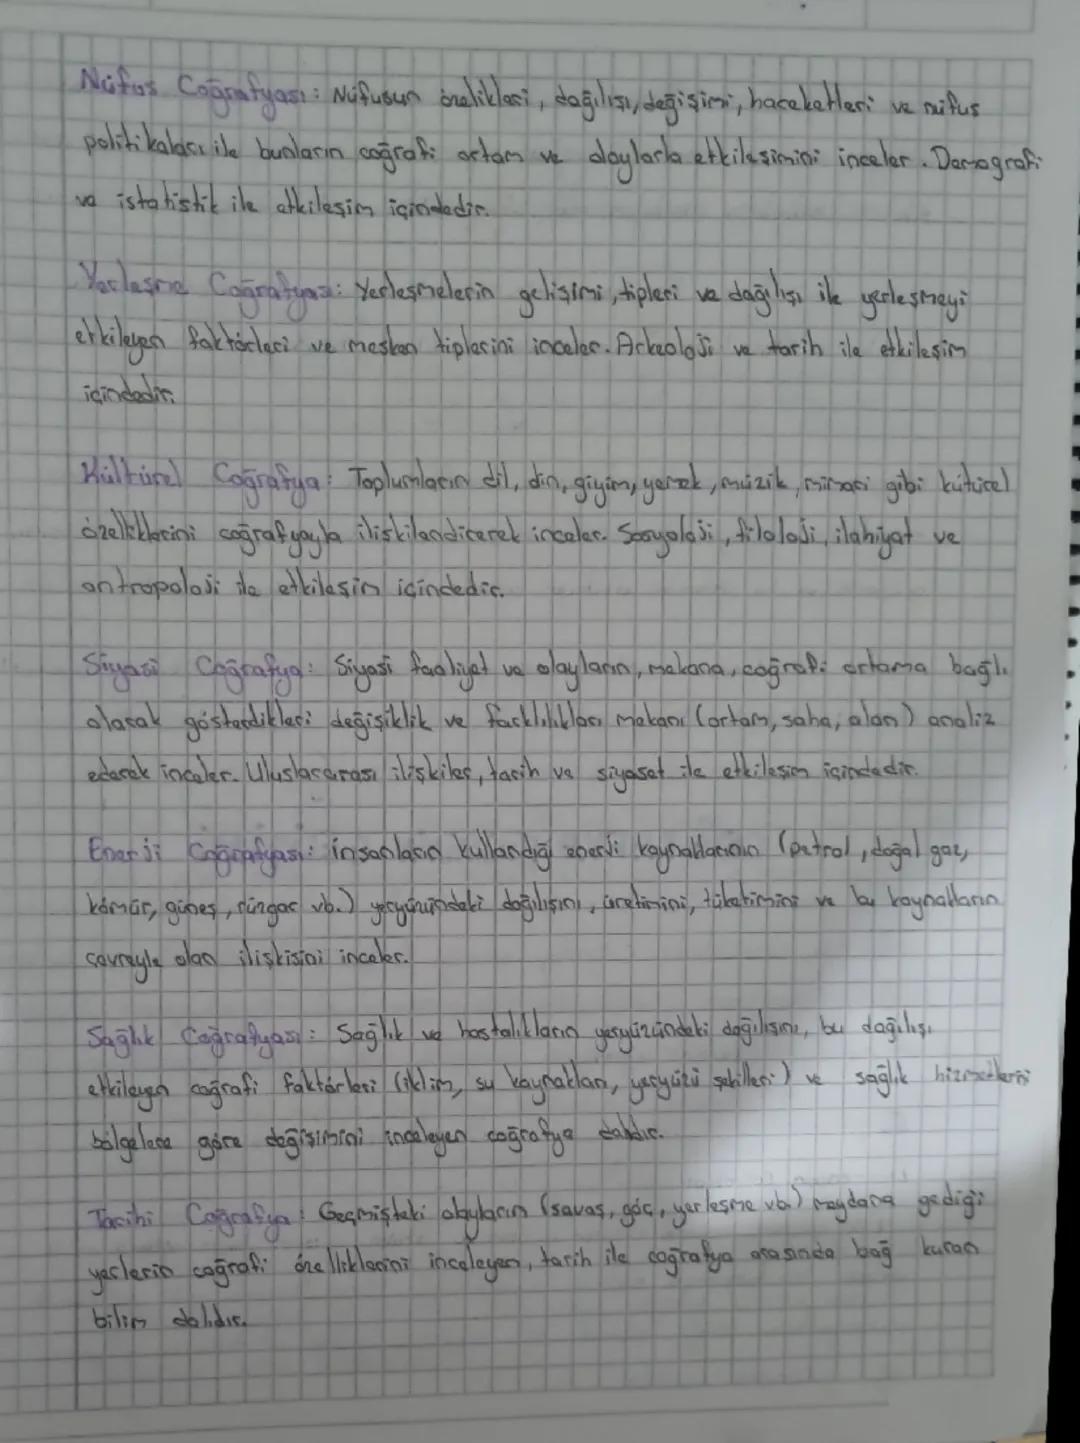 Nüfus Coğrafyası: Nüfusun özelikleri, dağılışı, değişimi, hareketleri ve nüfus
politikaları ile bunların coğrafi ortam ve olaylarla etkileşimini inceler. Demografi
ve istatistik ile etkileşim içindedir.
Yerleşme Coğrafyası: Yerleşmelerin gelişimi, tipleri ve dağılışı ile yerleşmeyi
etkileyen faktörleri ve mesken tiplerini inceler. Arkeoloji ve tarih ile etkileşim
içindedir.
Kültürel Coğrafya: Toplumların dil, din, giyim, yemek, müzik, mimari gibi kütürel
özelliklerini coğrafyayla ilişkilendirerek inceler. Sosyoloji, filoloji, ilahiyat ve
antropoloji ile etkileşim içindedir.
Siyasi Coğrafya: Siyasi faaliyet ve olayların, mekana, coğrafi ortama bağlı
olarak gösterdikleri değişiklik ve farklılıkları mekanı (ortam, saha, alan) analiz
ederek inceler. Uluslararası ilişkiler, tarih ve siyaset ile etkileşim içindedir.
Enerji Coğrafyası: İnsanların kullandığı enerji kaynaklarının (petrol, doğal gaz,
kömür, güneş, rüzgar vb.) yeryüzündeki dağılışını, üretimini, tüketimini ve bu kaynakların
çevreyle olan ilişkisini inceler.
Sağlık Coğrafyası: Sağlık ve hastalıkların yeryüzündeki dağılışını, bu dağılışı
etkileyen coğrafi faktörleri (iklim, su kaynakları, yeryüzü şekilleri) ve sağlık hizmetlerini
bölgelere göre değişimini inceleyen coğrafya dalıdır.
Tarihi Coğrafya: Geçmişteki olayların (savaş, göç, yerleşme vb.) meydana gediği
yerlerin coğrafi özelliklerini inceleyen, tarih ile coğrafya arasında bağ kuran
bilim dalıdır.